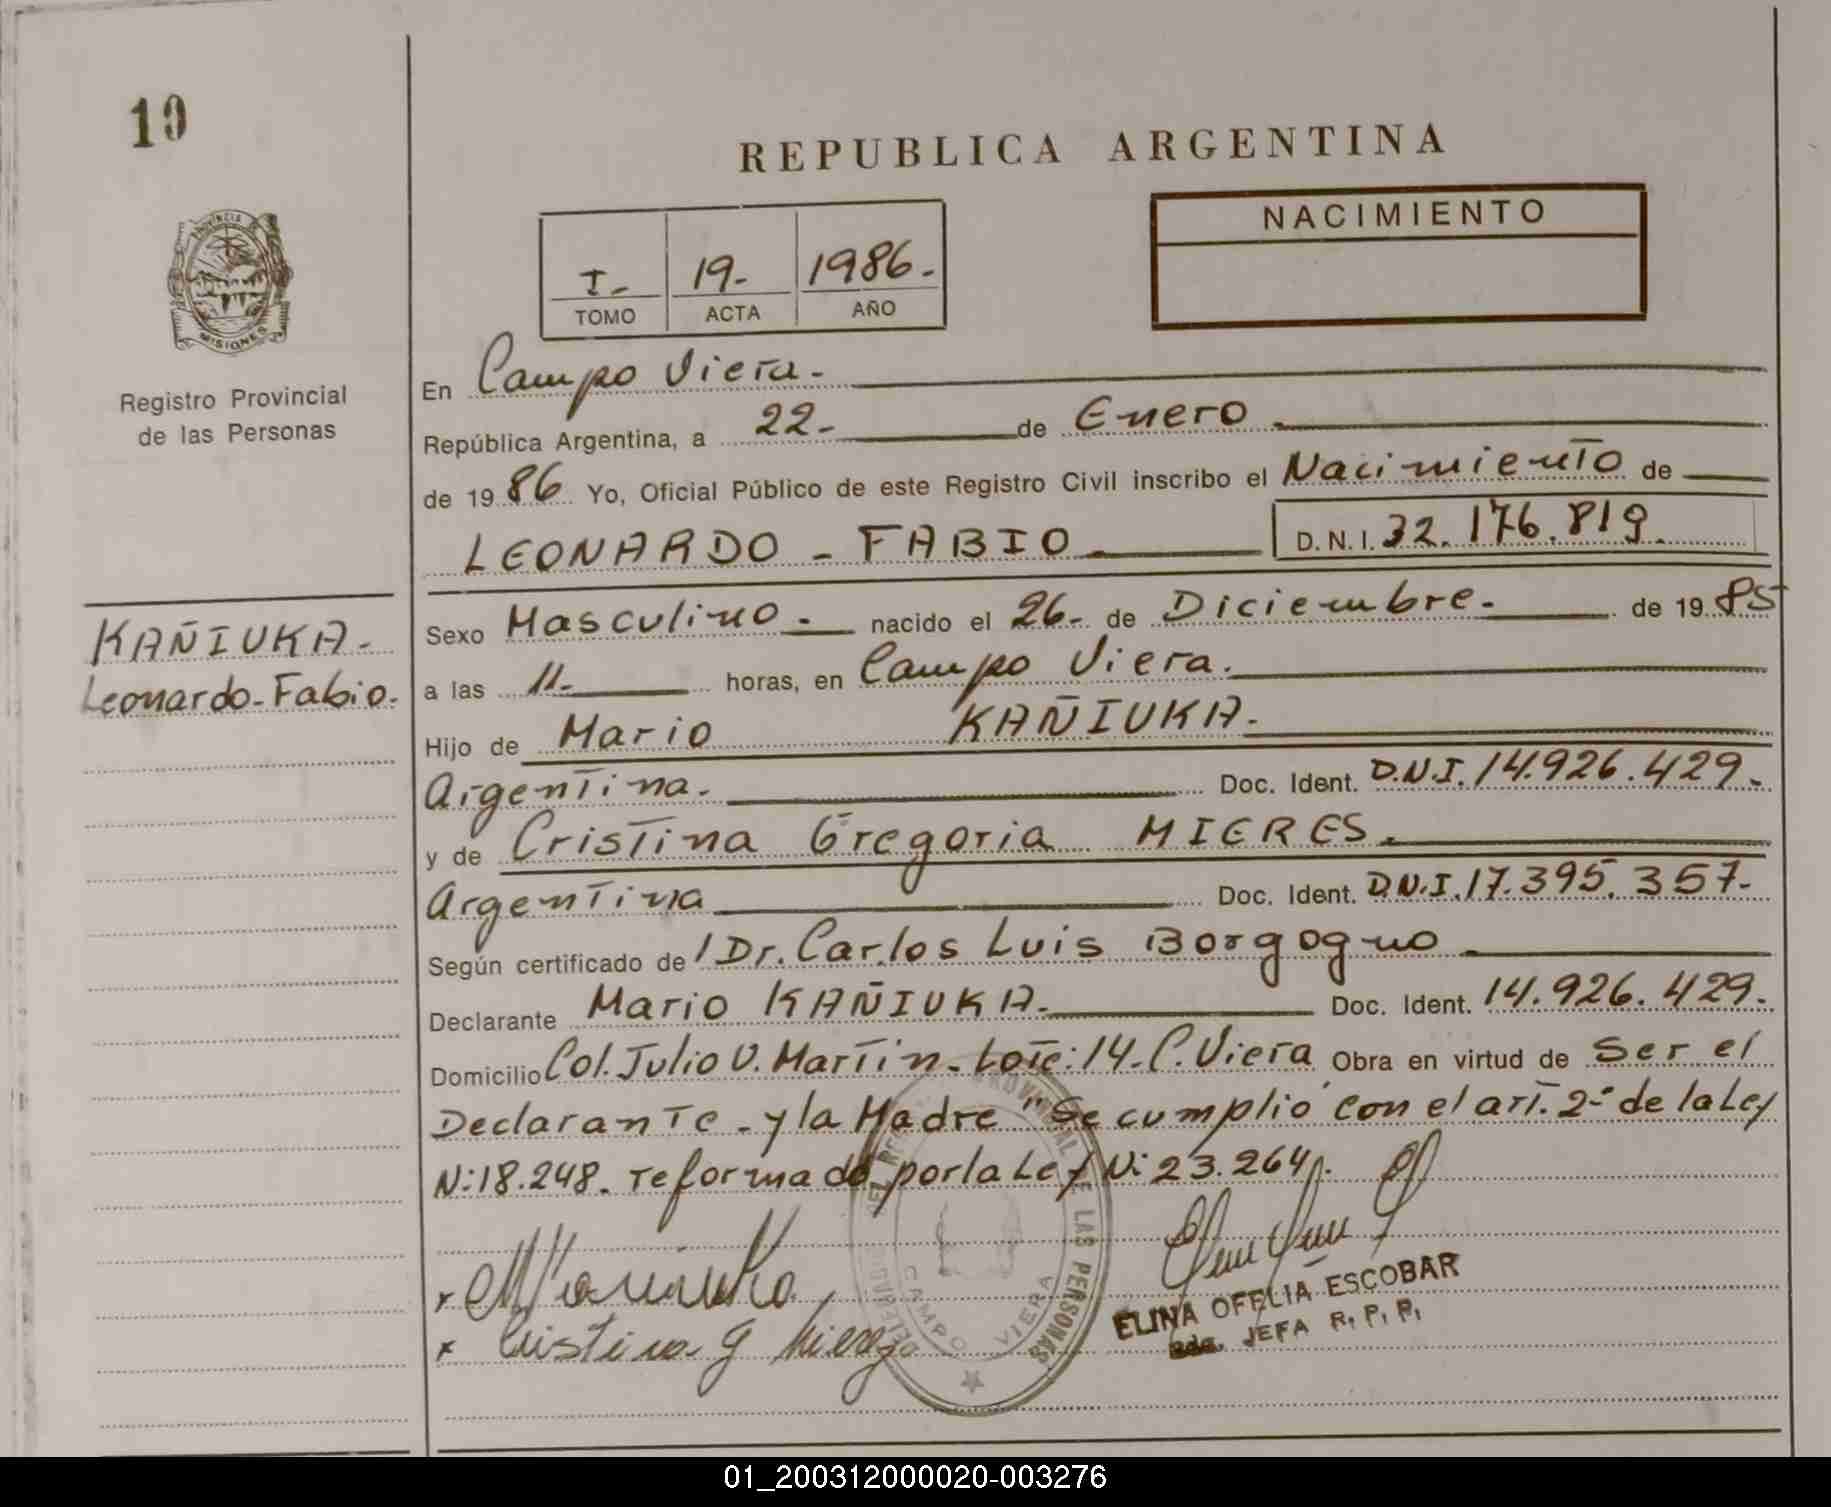 10
REPUBLICA ARGENTINA
PROVINCIA
MISIONES
Registro Provincial
de las Personas
I- 19- 1986-
TOMO ACTA AÑO
NACIMIENTO
En Campo Viera-
República Argentina, a 22- de Enero
de 19 86 Yo, Oficial Público de este Registro Civil inscribo el Nacimiento de
LEONARDO - FABIO D.N.I. 32.176.819.
KAÑIUKA-
Leonardo-Fabio.
Sexo Masculino.- nacido el 26- de Diciembre- de 19 85
a las 11- horas, en Campo Viera.
Hijo de Mario KAÑIUKA.
Argentina. Doc. Ident. D.N.I. 14.926.429-
y de Cristina Gregoria MIERES.
Argentina Doc. Ident. D.N.I. 17.395.357-
Según certificado de / Dr. Carlos Luis Borgogno
Declarante Mario KAÑIUKA. Doc. Ident. 14.926.429-
Domicilio Col. Julio U. Martin- Lote: 14- C. Viera Obra en virtud de Ser el
Declarante - y la Madre "Se cumplio con el art. 2° de la Ley
N: 18.248. reformado por la Ley N: 23.264.
x
x Cristina G Mieres
PROVINCIAL DE LAS PERSONAS
CAMPO VIERA
ELINA OFELIA ESCOBAR
JEFA R. P. P.
01_200312000020-003276